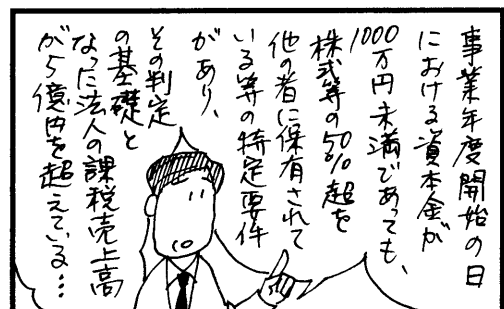 事業年度開始の日
における資本金が
1000万円未満であっても、
株式等の50%超を
他の者に保有されて
いる等の特定要件
があり、
その判定
の基礎と
なった法人の課税売上高
が5億円を超えている…